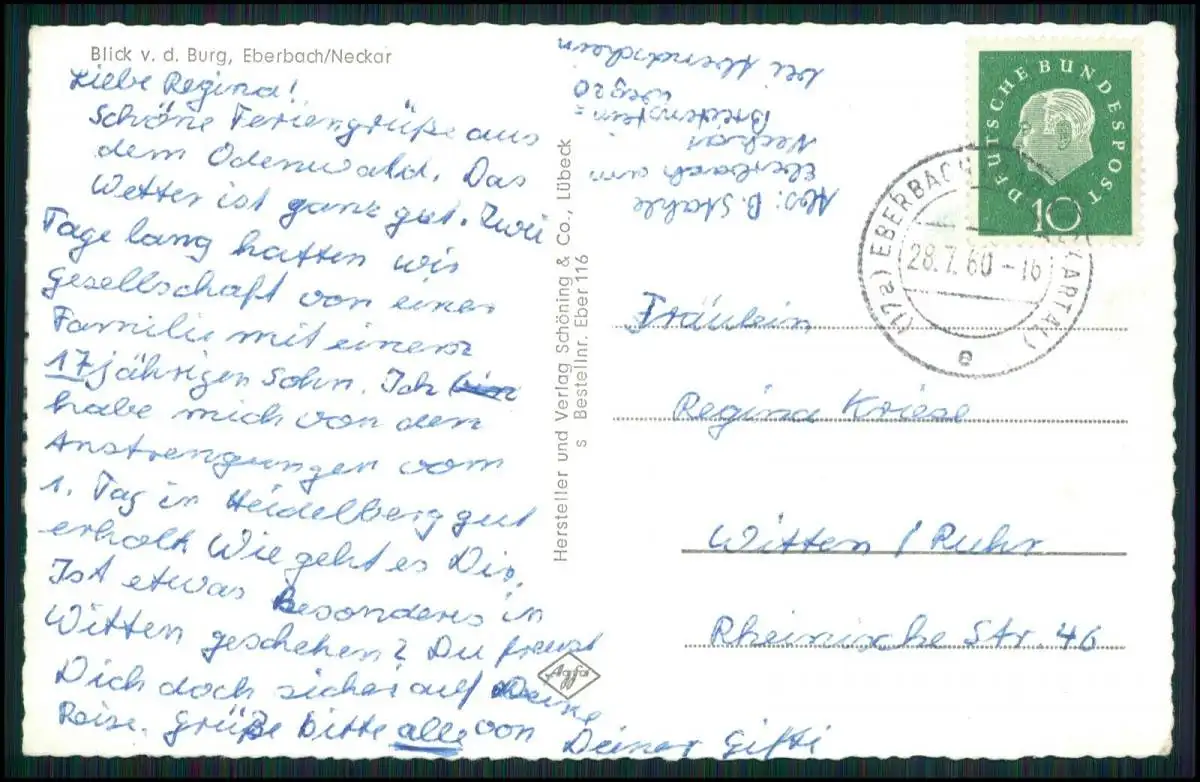 Blick v. d. Burg, Eberbach/Neckar
Liebe Regina!
Schöne Feriengrüße aus
dem Odenwald. Das
Wetter ist ganz gut. Zwei
Tage lang hatten wir
Gesellschaft von einer
Familie mit einem
17jährigen Sohn. Ich bin
habe mich von den
Anstrengungen vom
1. Tag in Heidelberg gut
erholt. Wie geht es Dir.
Ist etwas Besonderes in
Witten geschehen? Du freust
Dich doch sicher auf Deine
Reise. Grüße bitte alle von
Deiner Gifti
Abs: B. Stahle
Eberbach am
Neckar
Breitenstein=
weg 20
bei
Hersteller und Verlag Schöning & Co., Lübeck
s Bestellnr. Eber 116
Agfa
DEUTSCHE BUNDESPOST
10
(17a) EBERBACH
28.7.60-16
e
Fräulein
Regina Kriese
Witten / Ruhr
Rheinische Str. 46